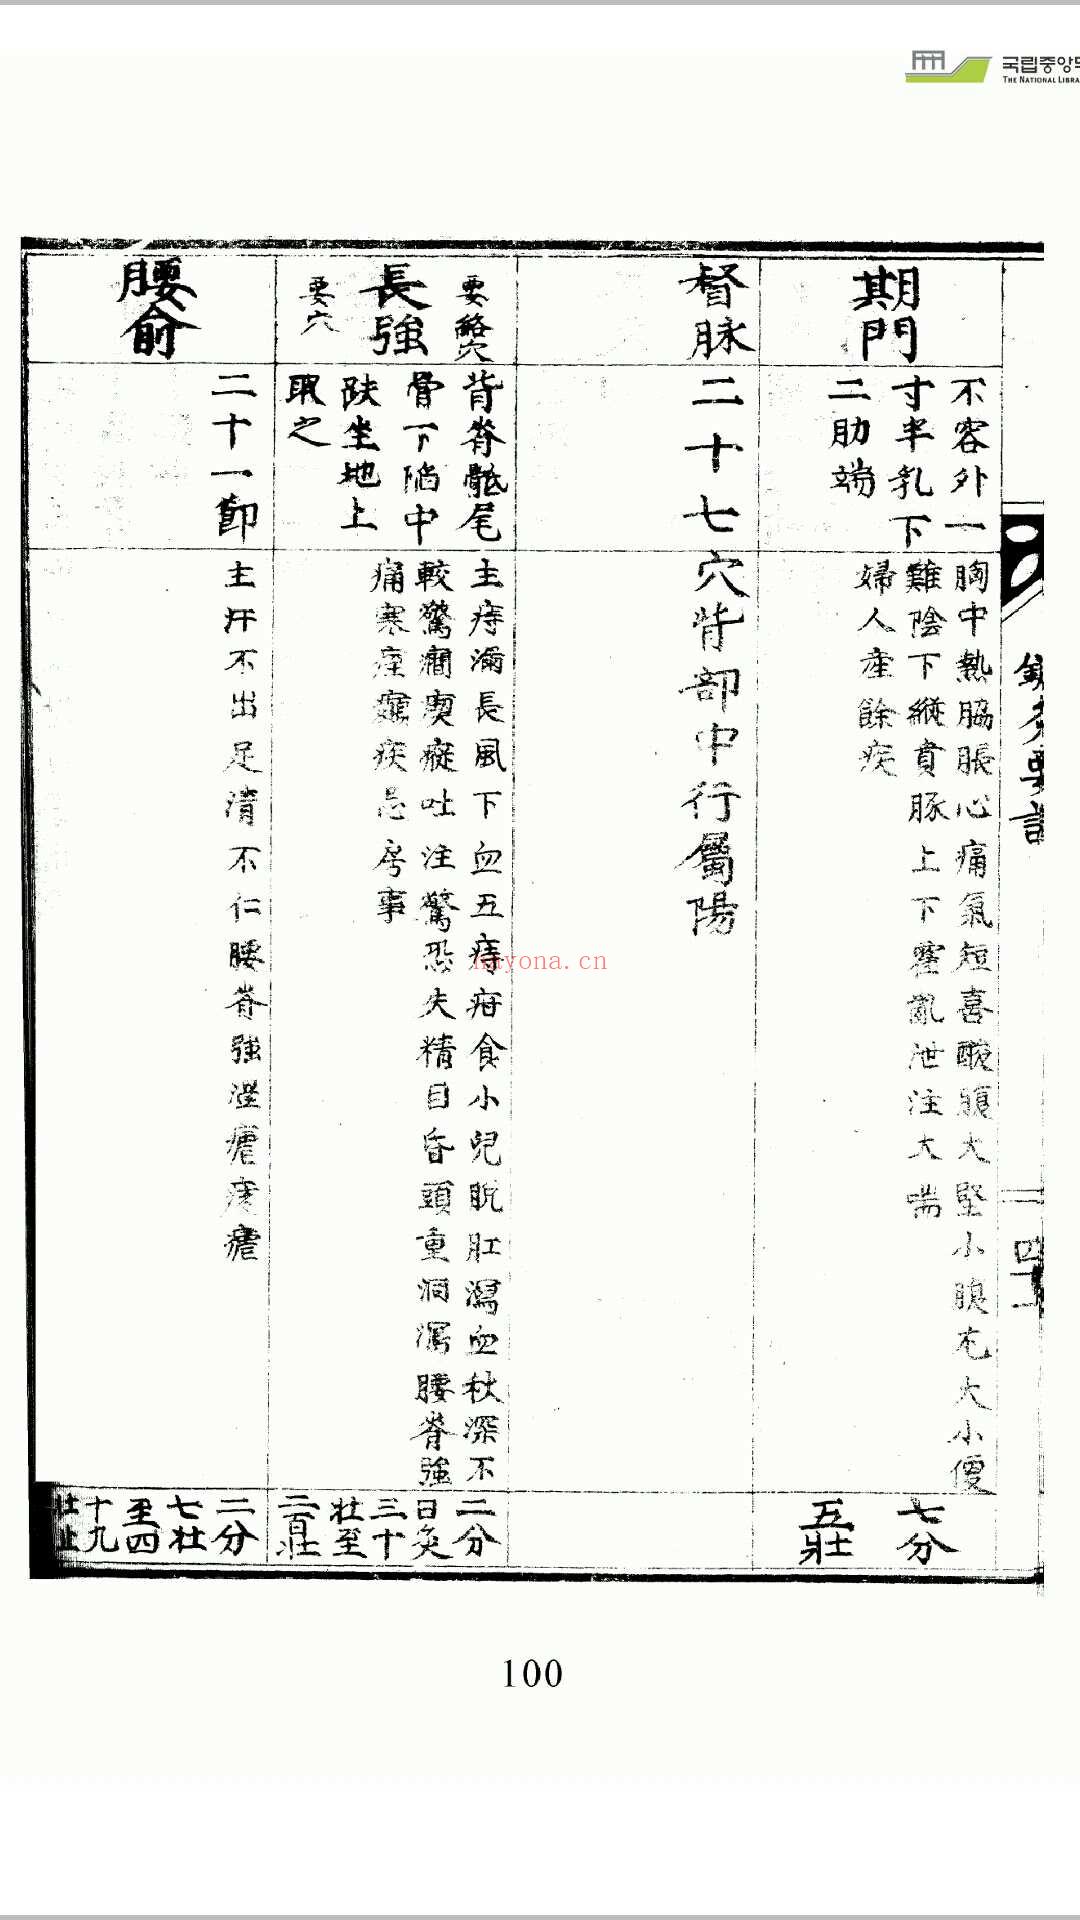 국립중앙도
THE NATIONAL LIBRA
期門
不容外一
寸半乳下
二肋端
胸中熱脇脹心痛氣短喜酸腹大堅小腹尢大小便
難陰下縱賁豚上下霍亂泄注大喘
婦人産餘疾
七分
五壯
督脉
二十七穴背部中行屬陽
要絡穴
長強
要穴
背脊骶尾
骨下陷中
趺坐地上
取之
主痔漏長風下血五痔疳食小兒脫肛瀉血秋深不
較驚癎瘈瘲吐注驚恐失精目昏頭重洞瀉腰脊強
痛寒痙癲疾忌房事
二分
日灸
三十
壯至
二百壯
腰俞
二十一節
主汗不出足清不仁腰脊強溫瘧痎瘧
二分
七壯
至四
十九
壯止
四十一
hayona.cn
100